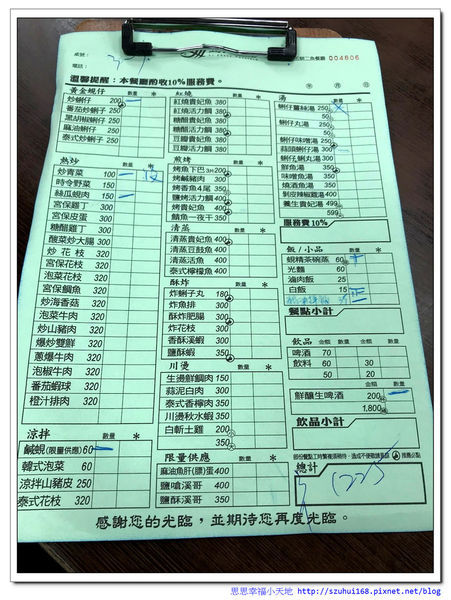 桌號：
電話：
004606
溫馨提醒：本餐廳酌收10%服務費。
年 月 日
黃金蜆仔 數量 *
炒蜊仔 200
番茄炒蜊仔 250
黑胡椒蜊仔 250
麻油蜊仔 250
泰式炒蜊仔 250
熱炒 數量 *
炒青菜 100
時令野菜 150
絲瓜蜆肉 150
宮保雞丁 300
宮保皮蛋 300
糖醋雞丁 300
酸菜炒大腸 300
炒花枝 300
宮保花枝 320
泡菜花枝 320
宮保鯛魚 320
炒海香菇 320
泡菜牛肉 320
炒山豬肉 320
爆炒雙鮮 320
蔥爆牛肉 320
泡椒牛肉 320
番茄蝦球 320
橙汁排肉 320
涼拌 數量 *
鹹蜆(限量供應) 60
韓式泡菜 60
涼拌山豬皮 250
泰式花枝 320
紅燒 數量 *
紅燒貴妃魚 380
紅燒活力鯛 380
糖醋貴妃魚 380
糖醋活力鯛 380
豆瓣貴妃魚 380
豆瓣活力鯛 380
煎烤 數量 *
烤魚下巴 200
烤鹹豬肉 300
烤香魚4尾 350
鹽烤活力鯛 400
烤貴妃魚 400
鯖魚一夜干 350
清蒸 數量 *
清蒸貴妃魚 400
清蒸豆鼓魚 400
清蒸活魚 400
泰式檸檬魚 400
酥炸 數量 *
炸蜊子丸 180
炸魚排 300
酥炸肥腸 300
炸花枝 300
香酥溪蝦 300
鹽酥蝦 350
川燙 數量 *
生燙鮮鯛肉 150
蒜泥白肉 300
泰式香檸肉 350
川燙秋水蝦 350
白斬土雞 200
350
限量供應 數量 *
麻油魚肝(膘)蛋 400
鹽嗆溪哥 400
鹽酥溪哥 350
湯 數量 *
蜊仔薑絲湯 250
50
蜊仔丸湯 250
50
蜊仔味噌湯 250
蒜頭蜊仔湯 300
鮮魚湯 350
味噌魚湯 350
燒酒魚湯 350
養生貴妃湯 499
599
服務費10%
飯/小品 數量 *
蜆精茶碗蒸 60
光麵 60
滷肉飯 25
白飯 15
餐點小計
飲品 金額 數量 金額 數量
啤酒 70
飲料 60 30
50 20
金額 數量
鮮釀生啤酒 200
1,800
飲品小計
推薦必點
總計
1225
感謝您的光臨，並期待您再度光臨。
思思幸福小天地 http://szuhui168.pixnet.net/blog